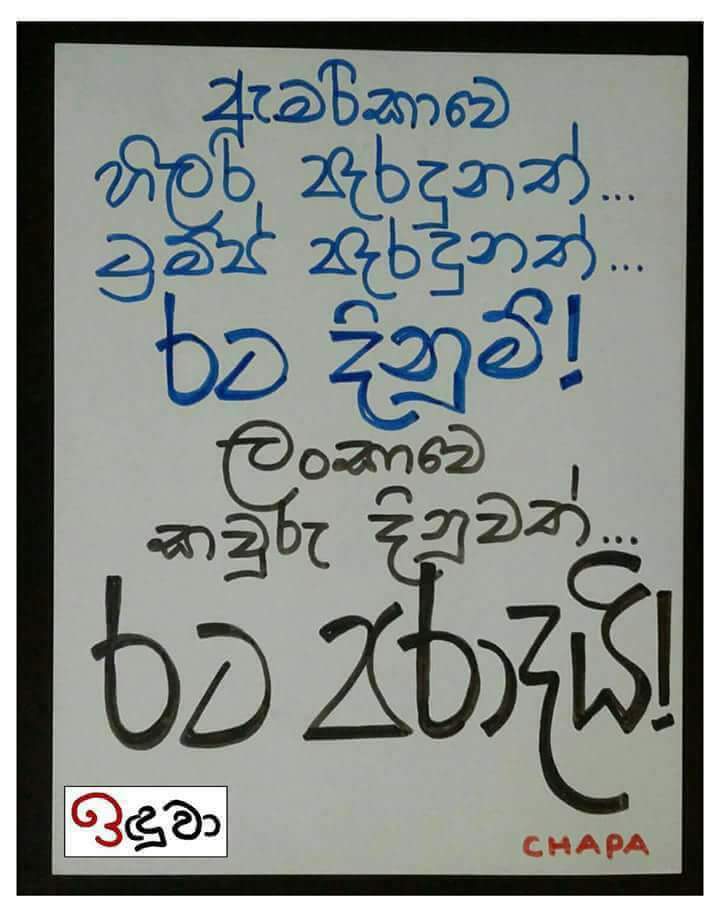 ඇමරිකාවෙ
හිලරි පැරදුනත්...
ට්‍රම්ප් පැරදුනත්...
රට දිනුම්!
ලංකාවෙ
කවුරු දිනුවත්...
රට පරාදයි!
ඉඳුවා
CHAPA